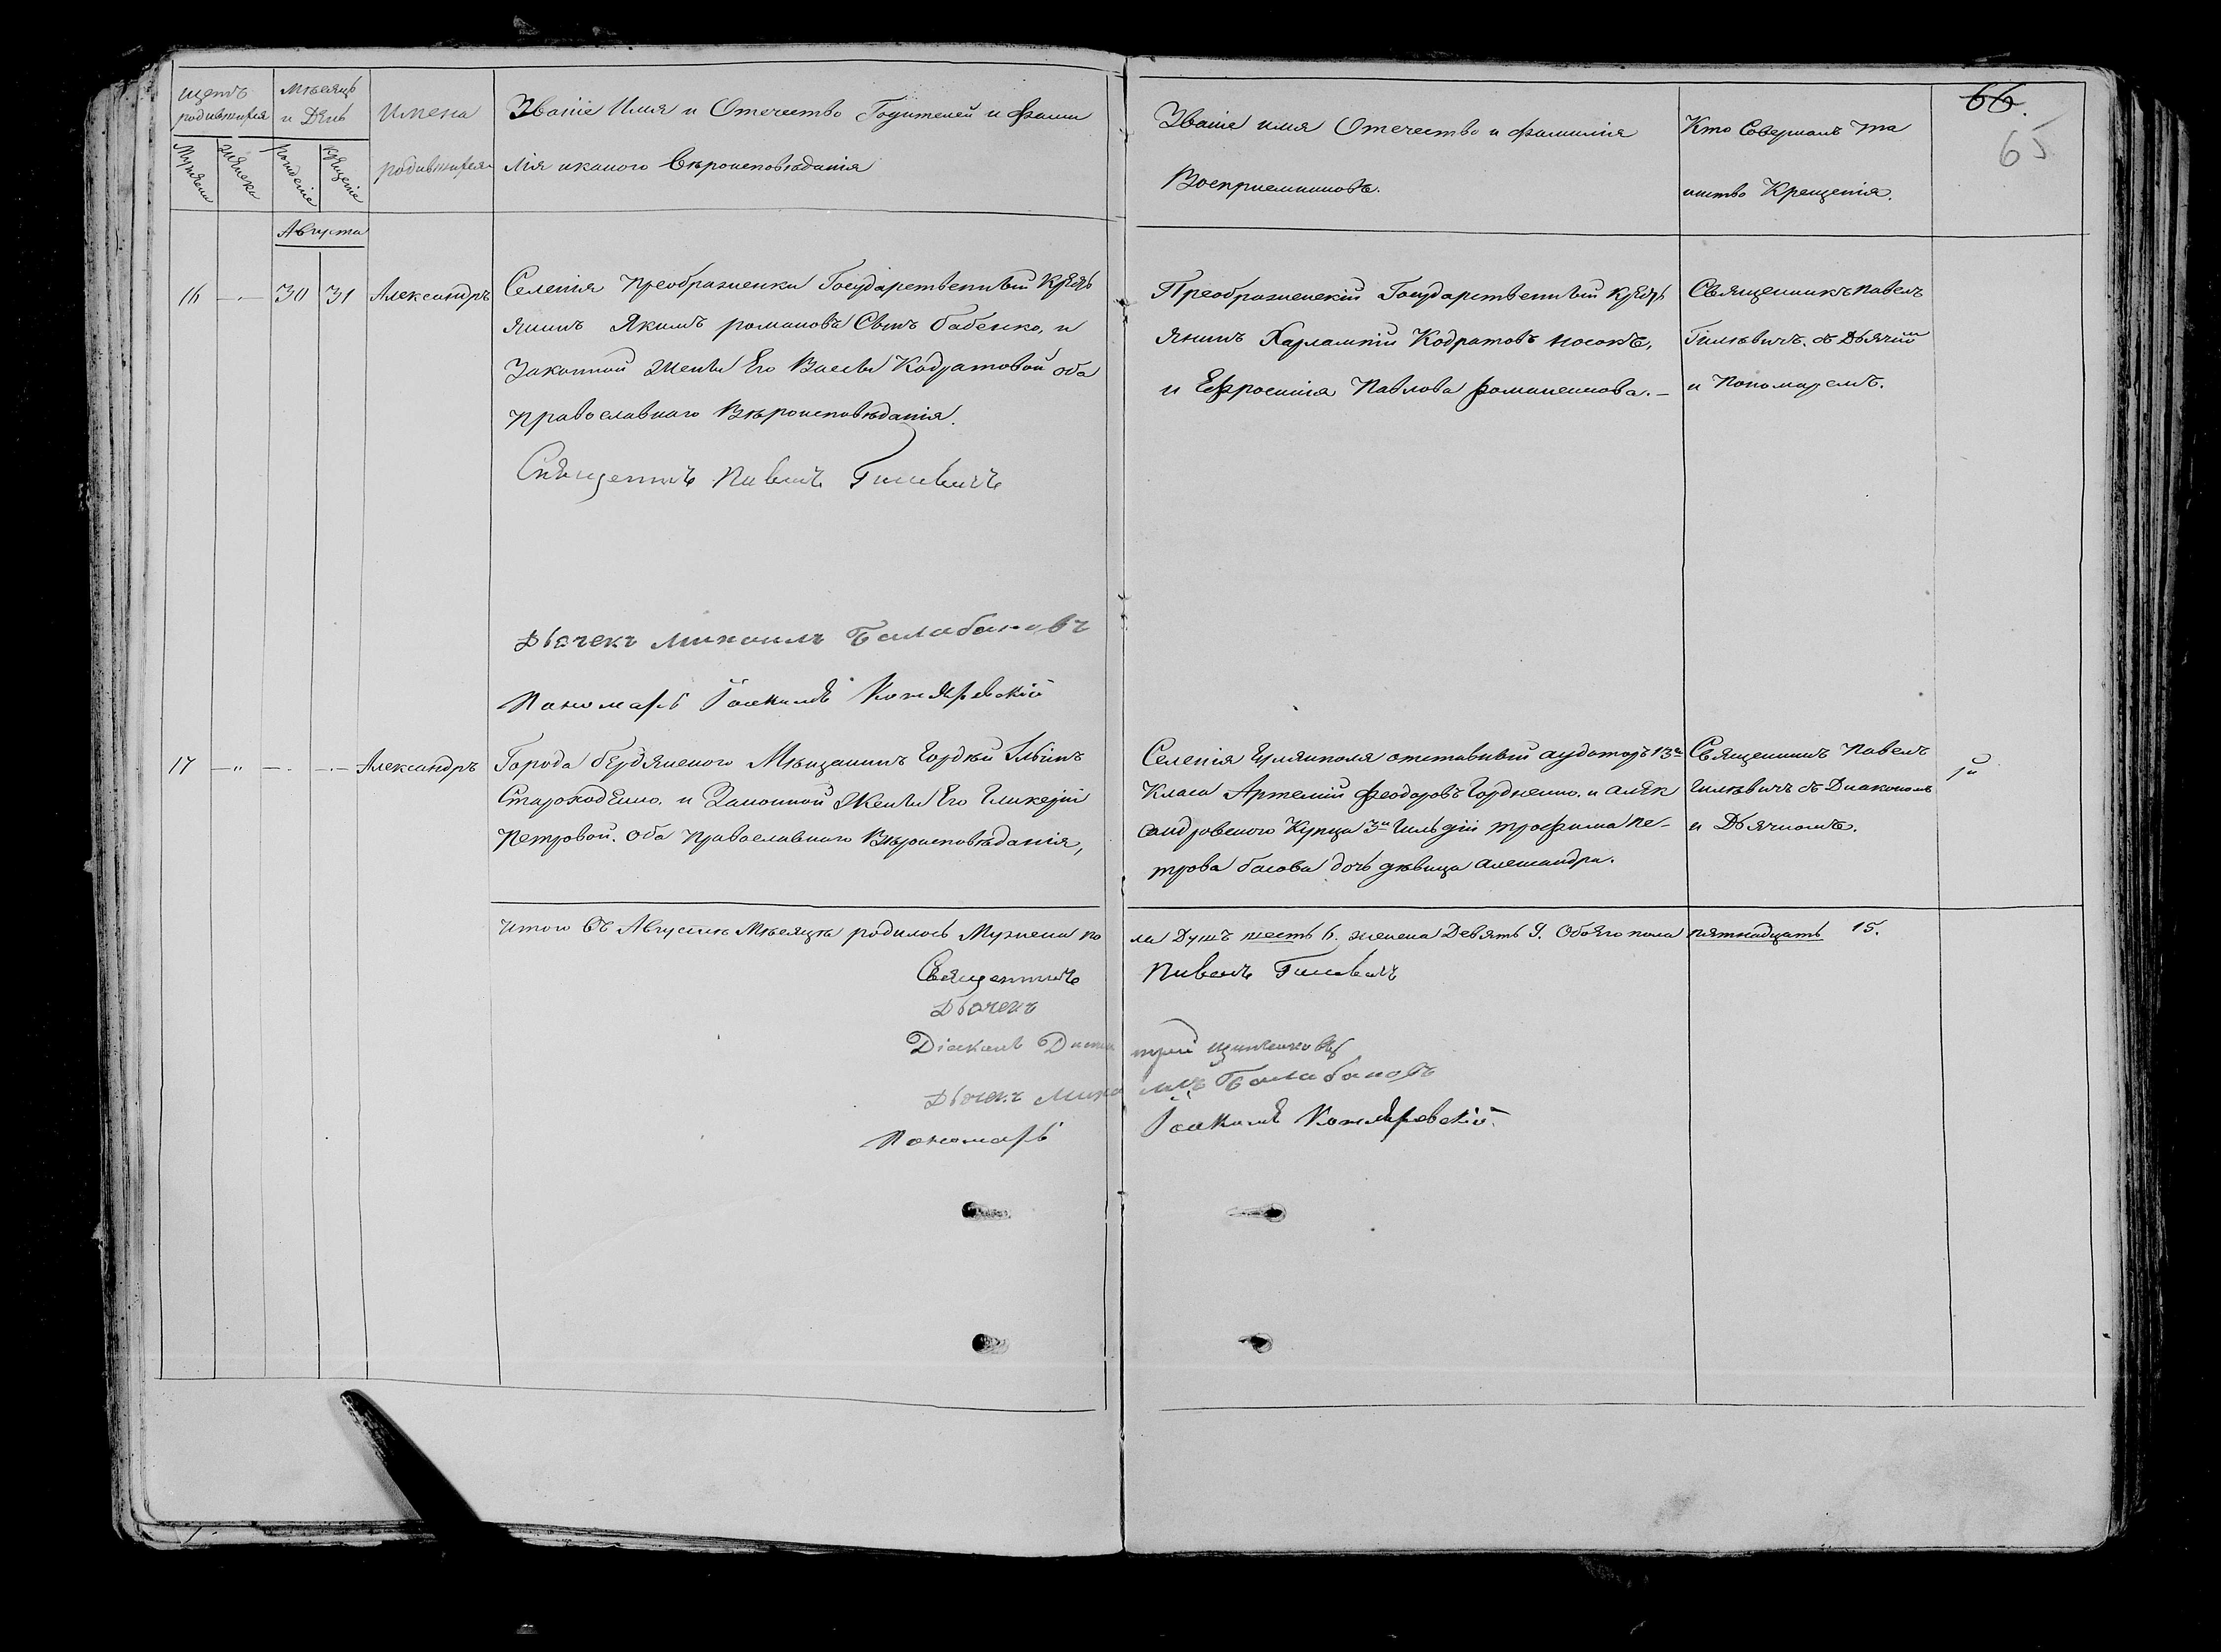 66.
65
Щетъ родившихся
Мѣсяцъ и День
Имена родившихся
Званіе Имя и Отечество Родителей и фами
лія и какого Вѣроисповѣданія
Званіе имя Отечество и фамилія
Воспріемниковъ.
Кто Совершалъ та
инство Крещенія.
Мужеска
Женска
рожденіе
крещеніе
Августа
16
30
31
Александръ
Селенія Преображенки Государственный Кресть
янинъ Якимъ романовъ Сынъ бабенко, и
Законной жены Его Вассы Кодратовой оба
православнаго Вѣроисповѣданія.
Священникъ Павелъ Гилевичъ
Дьячекъ Михаилъ Балабановъ
Пономарь Іоакимъ
Преображенскій Государственный кресть
янинъ Харлампій Кодратовъ носокъ,
и Ефросинія Павлова романенкова.
Священникъ Павелъ
Гилѣвичъ. съ Дьячкомъ
и Пономаремъ.
17
Александръ
Города бердянского Мѣщанинъ Гордѣй Ильинъ
Староходенко. и Законной Жены Его Гликеріи
Петровой. оба Православнаго Вѣроисповѣданія,
Селенія отставный аудиторъ 13го
Класа Артемій Феодоровъ Гордиенко. и алек
сандровского Купца 3й Гильдіи трофима пе-
трова басова дочь дѣвица александра.
Священникъ Павелъ
Гилѣвичъ съ Диакономъ
и Дьячкомъ.
Итого Въ Августѣ Мѣсяцѣ родилось Мужеска по
ла Душъ шесть 6. женска Девять 9. Обоего пола пятнадцать 15.
Священникъ Павелъ Гилевичъ
Дьячекъ
Діаконъ Дими трій
Дьячекъ Миха илъ Балабановъ
Пономарь Іоакимъ